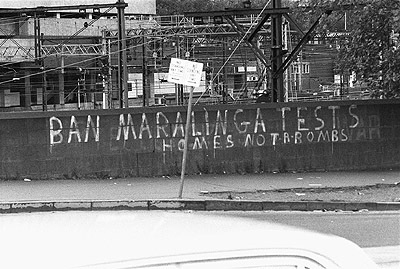 BAN MARALINGA TESTS
HOMES NOT A-BOMBS